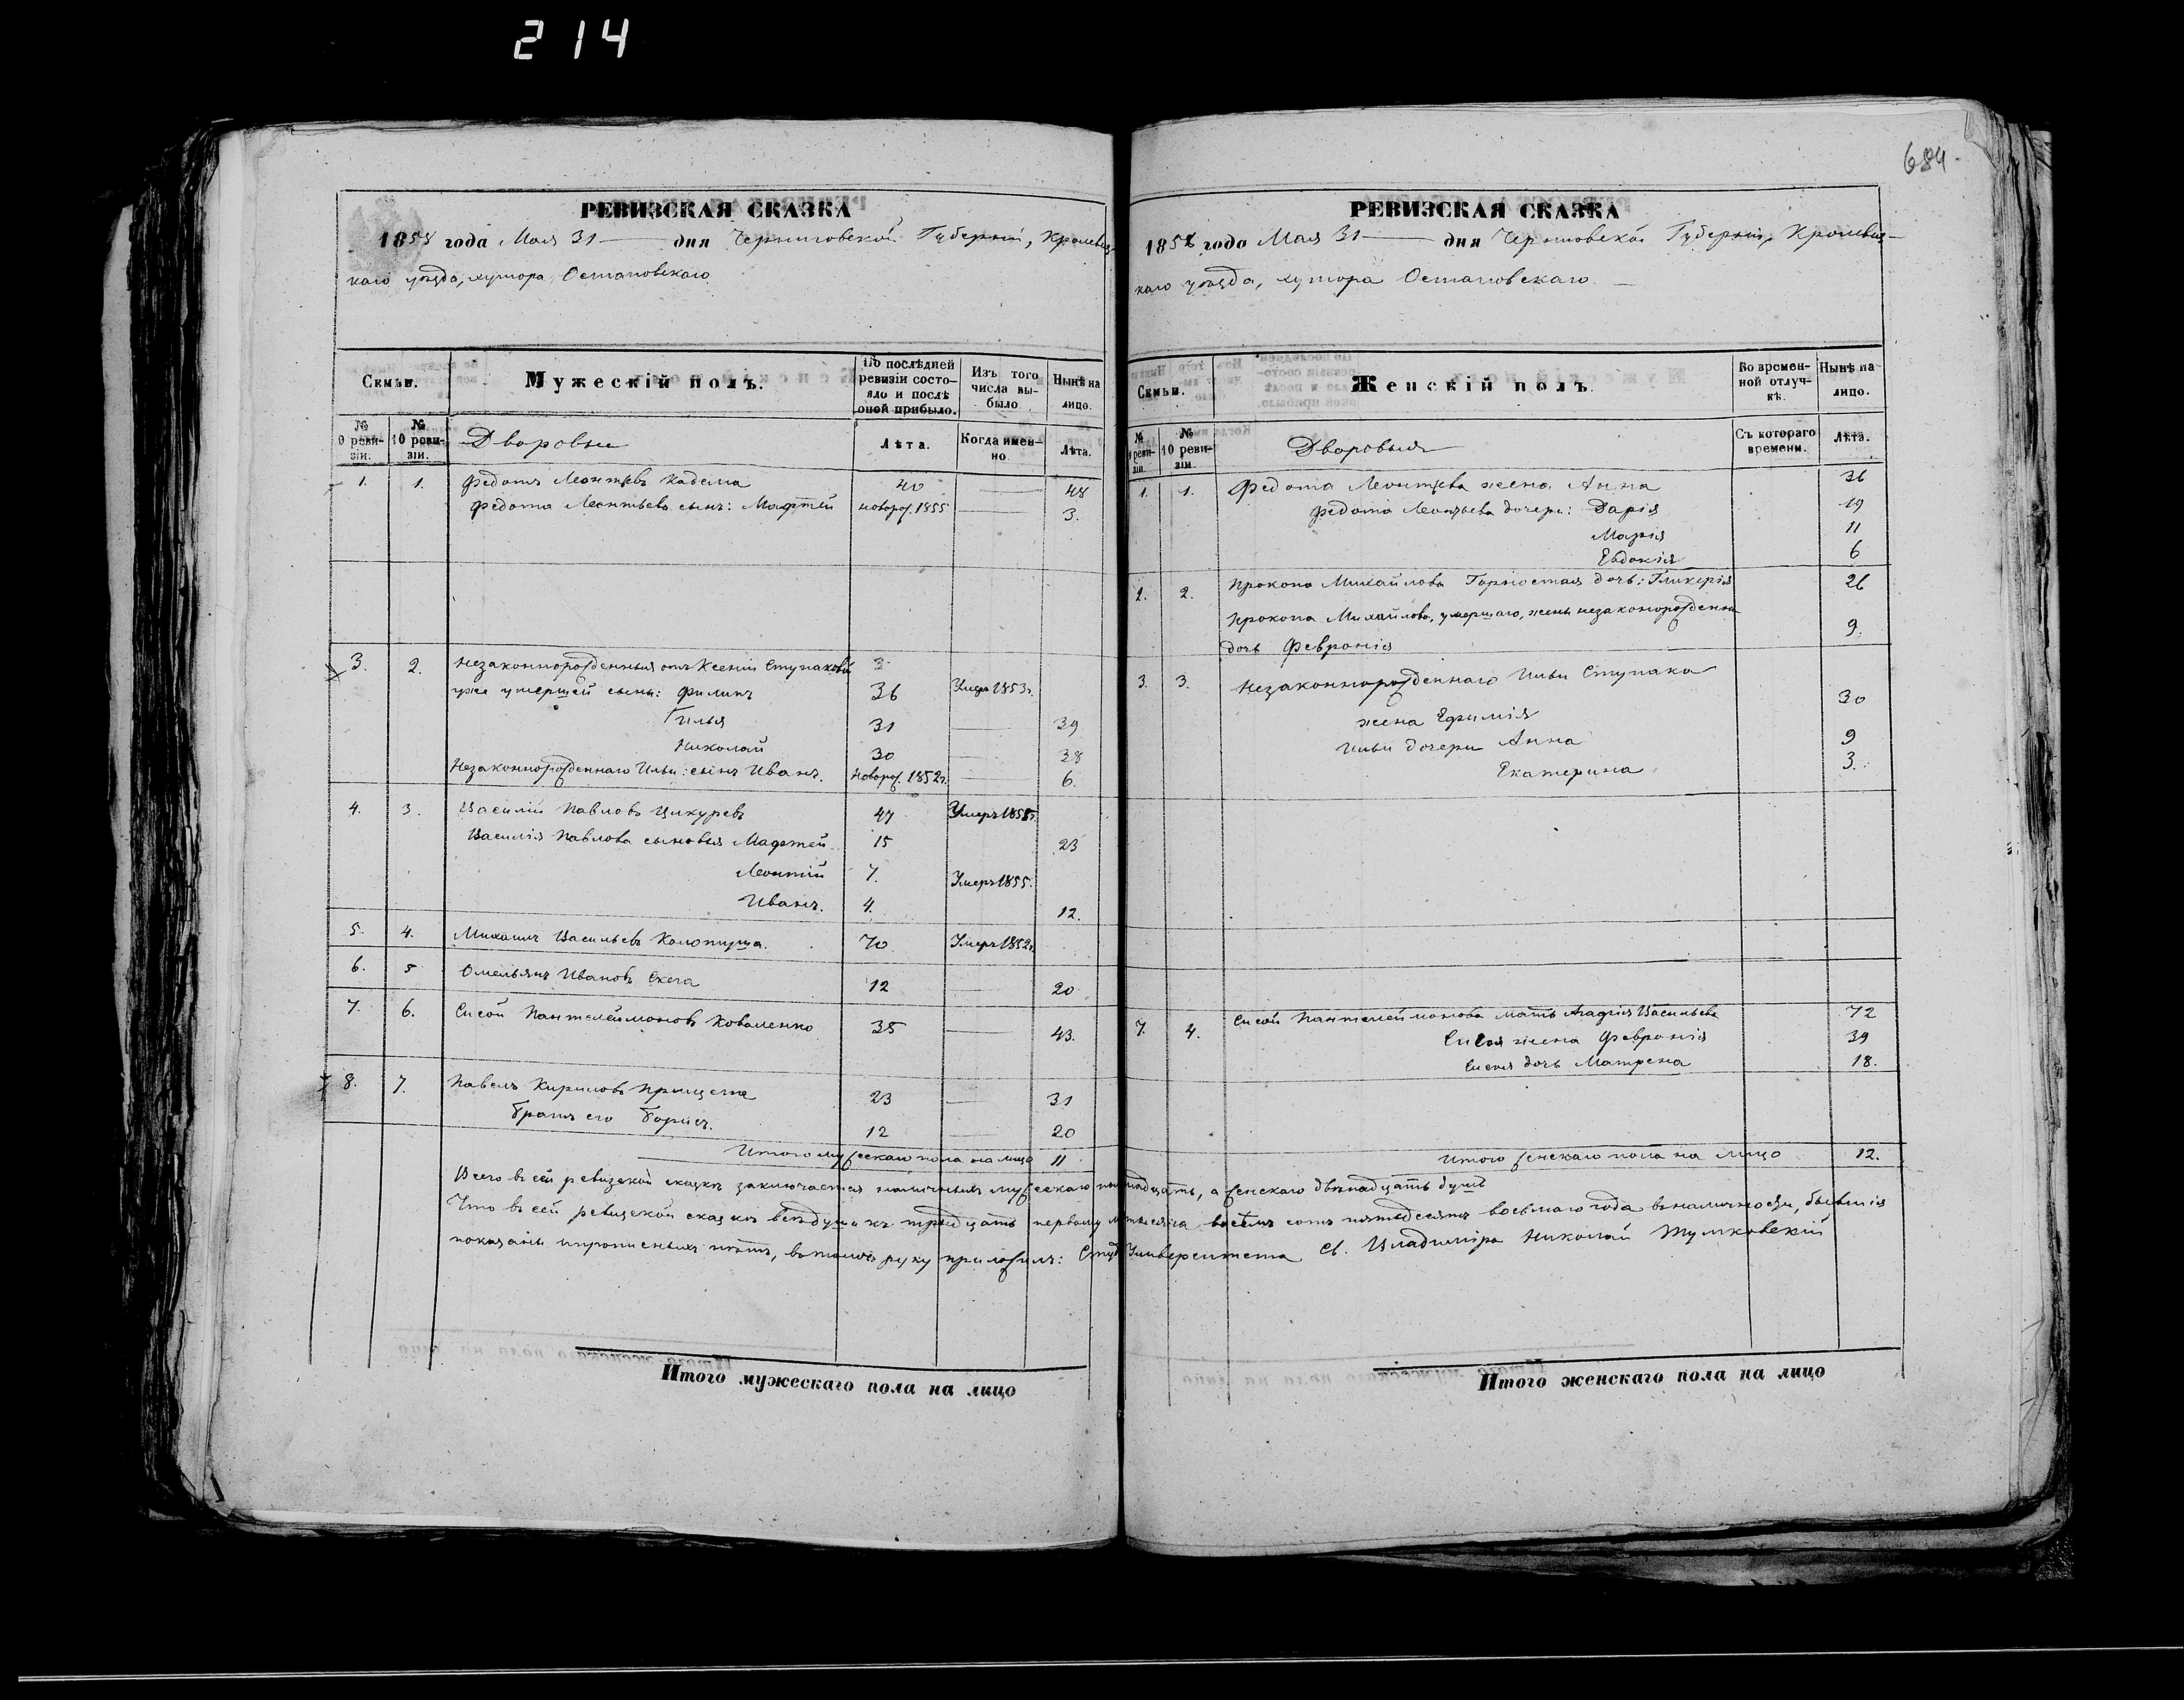 214
684.
РЕВИЗСКАЯ СКАЗКА
1858 года Мая 31 дня Черниговской Губерніи, Кролевец-
каго уѣзда, хутора Остаповскаго.
Семьи.
Мужескій полъ.
По послѣдней ревизіи состо-яло и послѣ оной прибыло.
Изъ того числа вы-было
Нынѣ на лицо.
№ 9 реви-зіи.
№ 10 реви-зіи.
Дворовые
Лѣта.
Когда имен-но
Лѣта.
1. 1. Федотъ Леонтьевъ 40 48
Федота Леонтьева сынъ: Мафтей новорож. 1855 3.
3. 2. Незаконнорожденныя отъ Ксеніи Ступаковой 3
уже умершей сыны: Филипъ 36 Умеръ 1853г.
Илья 31 39
Николай 30 38
Незаконнорожденнаго Ильи: сынъ Иванъ. Новорож. 1852г. 6.
4. 3. Василій Павловъ 47 Умеръ 1858г.
Василія Павлова сыновья Мафтей 15 23
Леонтій 7. Умеръ 1855.
Иванъ. 4. 12.
5. 4. Михаилъ Васильевъ Колотуша. 70 Умеръ 1852г.
6. 5 Омельянъ Ивановъ 12 20
7. 6. Сисой Пантелеймоновъ Коваленко 35 43.
8. 7. Павелъ Кириловъ 23 31
Братъ его Борисъ. 12 20
Итого мужескаго пола на лицо 11
РЕВИЗСКАЯ СКАЗКА
1858 года Мая 31 дня Черниговской Губерніи, Кролевец-
каго уѣзда, хутора Остаповскаго.
Семьи.
Женскій полъ.
Во времен-ной отлуч-кѣ.
Нынѣ на-лицо.
№ 9 реви-зіи.
№ 10 реви-зіи.
Дворовыя
Съ котораго времени.
Лѣта.
1. 1. Федота Леонтьева жена Анна 36
Федота Леонтьева дочери: Дарія 19
Марія 11
Евдокія 6
2. 2. Прокопа Михайлова Горностая дочь: Гликерія 26
Прокопа Михайлова, умершаго, жены незаконорожденна
дочь Февронія 9.
3. 3. Незаконнорожденнаго Ильи Ступака
жена Ефимія 30
Ильи дочери Анна 9
Екатерина 3.
7. 4. Сисоя Пантелеймонова мать Агафія Васильева 72
Сисоя жена Февронія 39
Сисоя дочь Матрена 18.
Итого женскаго пола на лицо 12.
Всего въ сей ревизской сказкѣ заключается наличныхъ мужескаго надцать, а женскаго двѣнадцать душъ
Что въ сей ревизской сказкѣ всѣ души къ тридцать первому мая тысяча восемь сотъ пятьдесятъ восьмаго года въ наличности, бывшія
показаны и прописныхъ нѣтъ, въ томъ и руку приложилъ: Студ. Университета Св. Владиміра Николай Тумковскій
Итого мужескаго пола на лицо
Итого женскаго пола на лицо